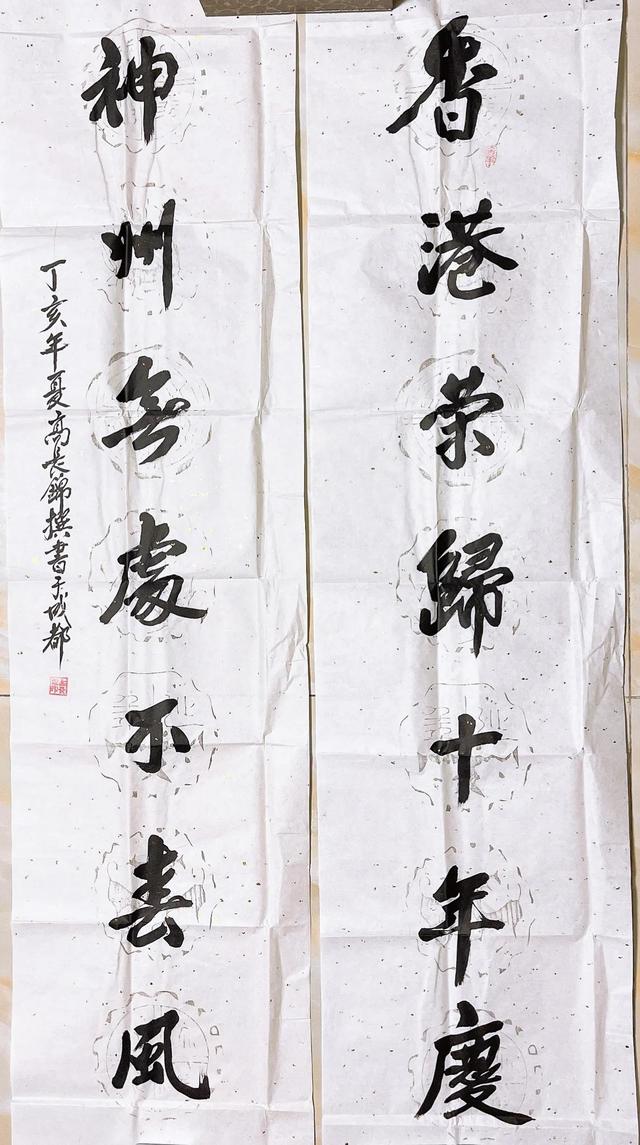 香港荣歸十年慶
神州無處不春風
丁亥年夏高長錦撰書于成都